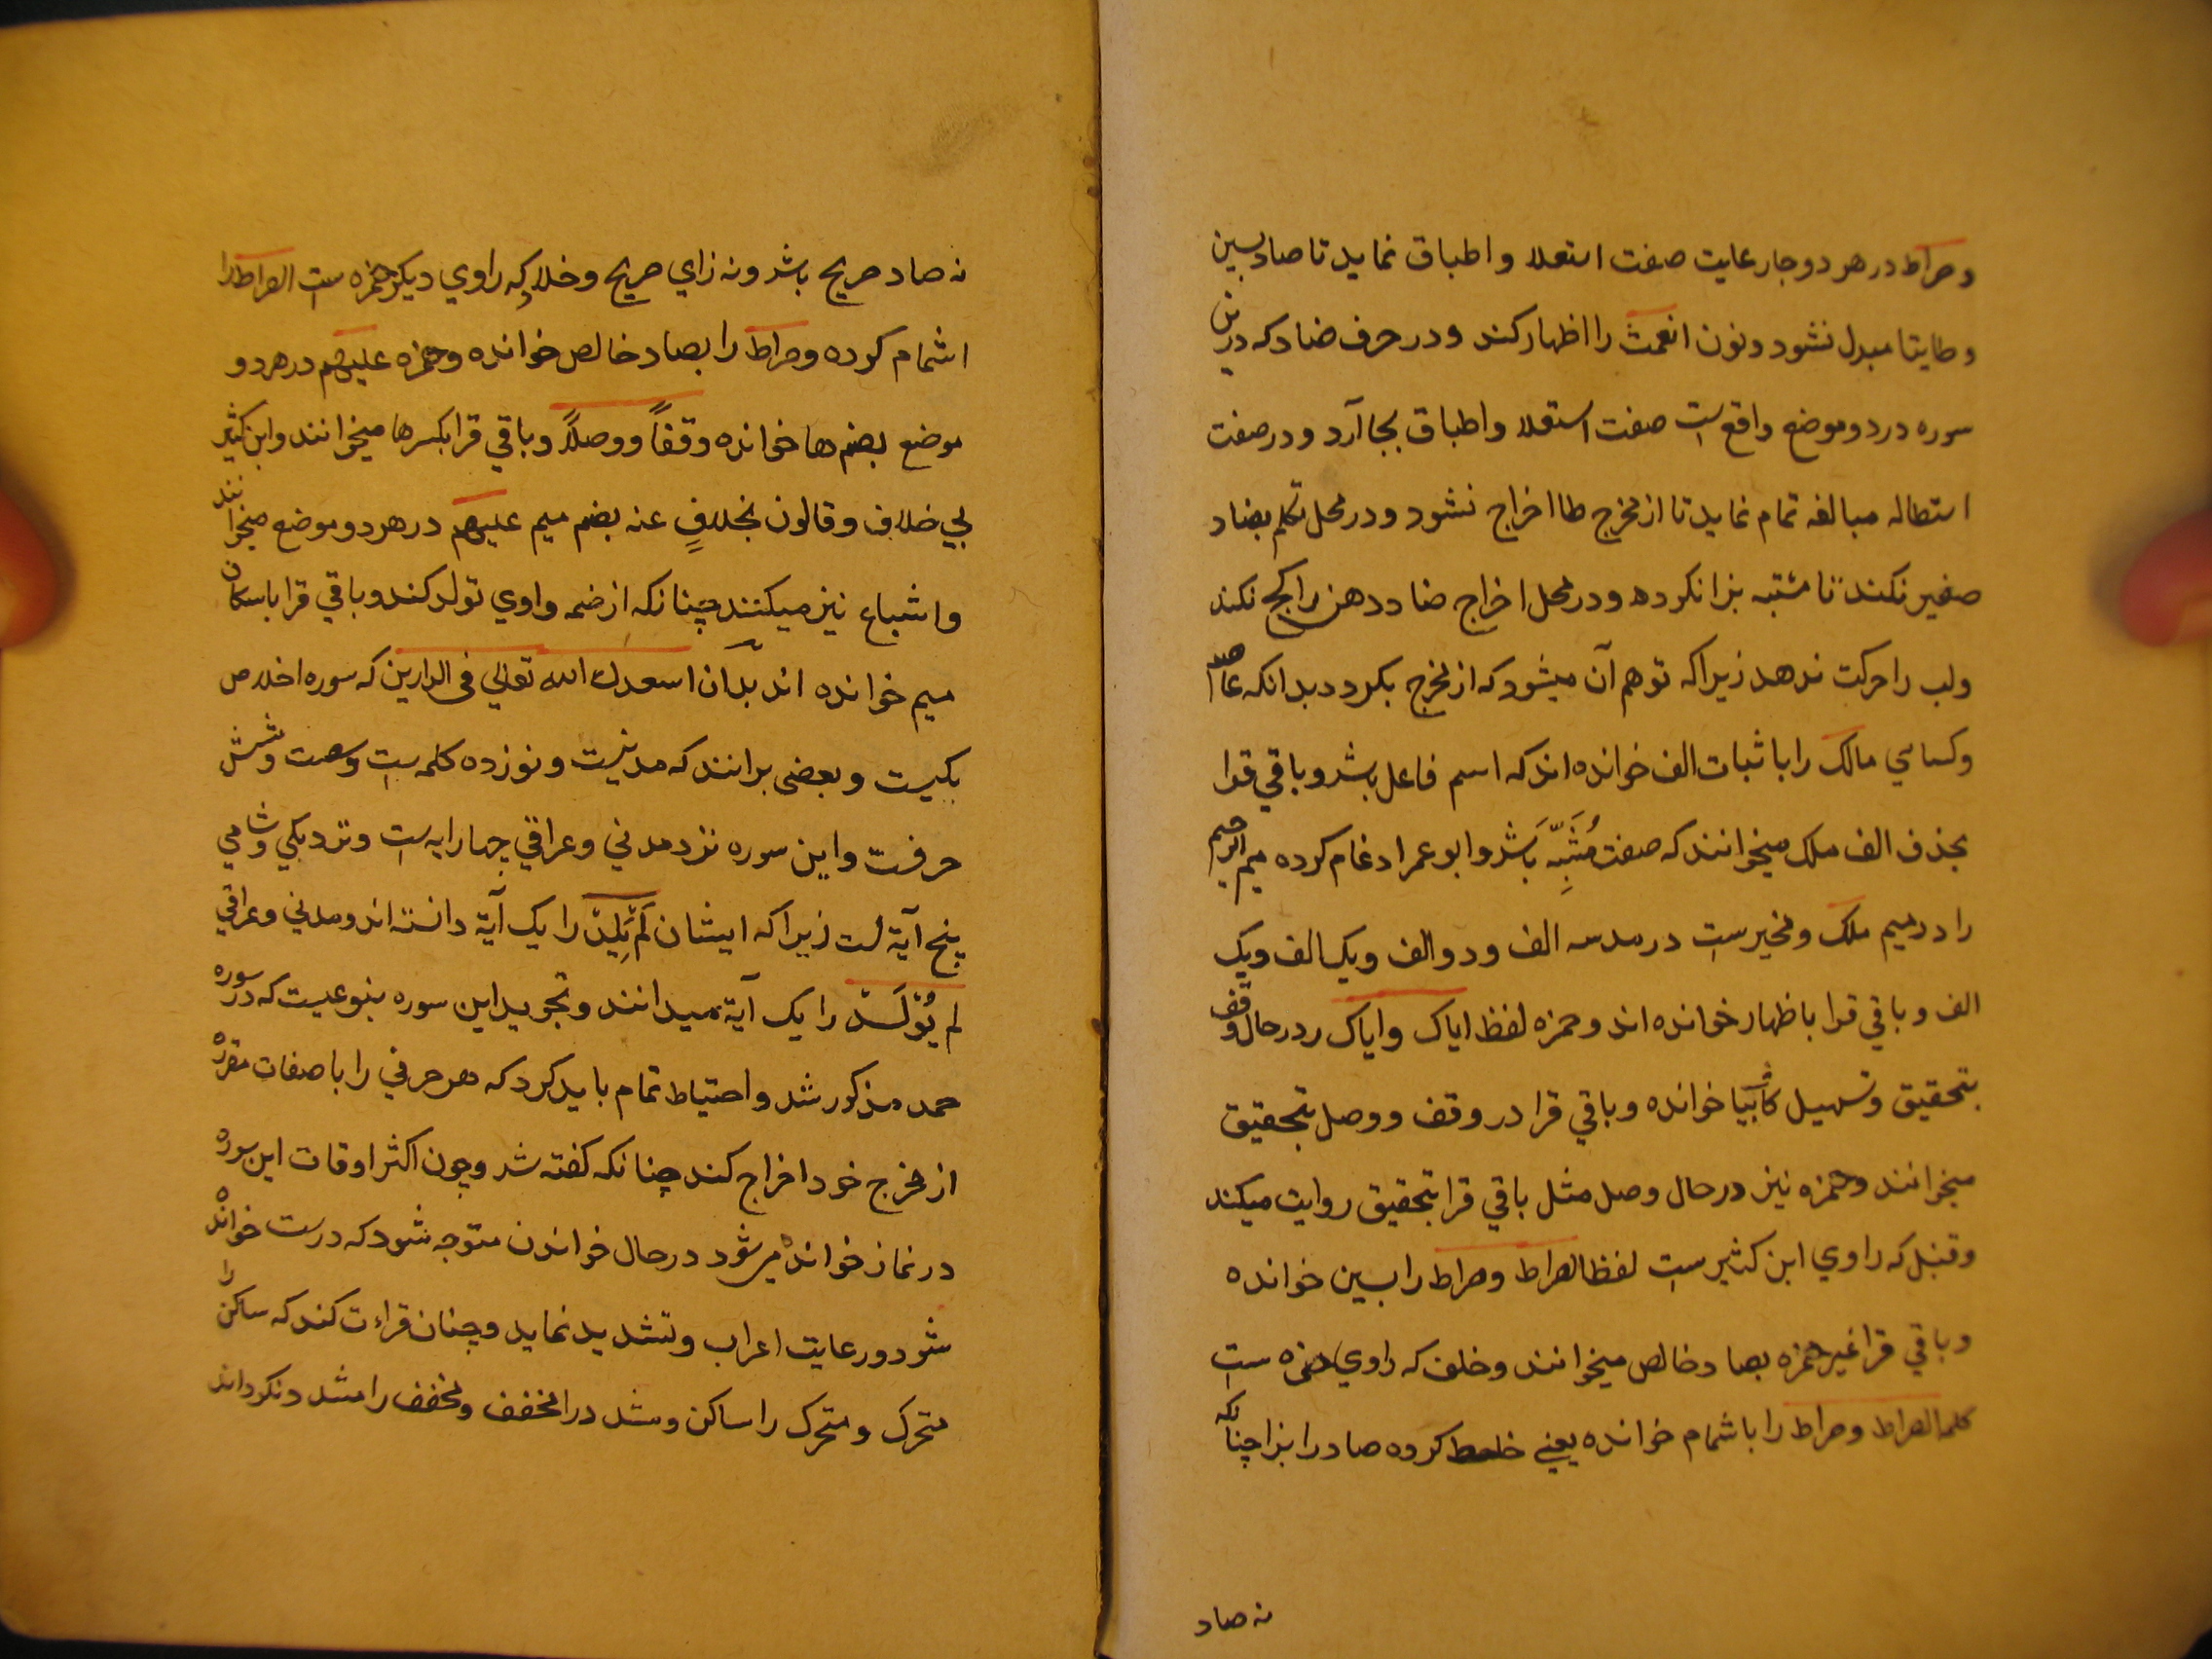 وصراط در هر دو جا رعایت صفت استعلا و اطباق نماید تا صاد بسین
و طا بتا مبدل نشود و نون انعمت را اظهار کند و در حرف ضاد که درین
سوره در دو موضع واقع است صفت استعلا و اطباق بجا آرد و در صفت
استطاله مبالغه تمام نماید تا از مخرج طا اخراج نشود و در محل تکلم بضاد
صفیر نکند تا مشتبه بزا نکردد و در محل اخراج ضاد دهن را کج نکند
و لب را حرکت ندهد زیرا که توهم آن میشود که از مخرج بکردد بدانکه عاصم
و کسایي مالک را باثبات الف خوانده اند که اسم فاعل باشد و باقي قرا
بحذف الف ملک میخوانند که صفت مُشَبِّه بَاشد و ابو عمرا دغام کرده میم الرحیم
را در میم ملک و مخیرست در مد سه الف و دو الف و یک الف و یک
الف و باقي قرا باظهار خوانده اند و حمزه لفظ ایاک و ایاک در حال وقف
بتحقیق و تسهیل کالیا خوانده و باقي قرا در وقف و وصل بتحقیق
میخوانند و حمزه نیز در حال وصل مثل باقي قرا بتحقیق روایت میکند
و قنبل که راوي ابن کثیر ست لفظ الصراط و صراط را بسین خوانده
و باقي قرا غیر حمزه بصاد خالص میخوانند و خلف که راوي حمزه ست
کلمه الصراط و صراط را باشمام خوانده یعني خلط کرده صاد را بزا چنانکه
نه صاد
نه صاد صریح باشد و نه زاي صریح و خلاد که راوي دیکر حمزه ست الصراط را
اشمام کرده و صراط را بصاد خالص خوانده و حمزه علیهم در هر دو
موضع بضم ها خوانده وقفاً و وصلاً و باقي قرا بکسر ها میخوانند و ابن کثیر
بي خلاف و قالون بخلافٍ عنه بضم میم علیهم در هر دو موضع میخوانند
و اشباع نیز میکنند چنانکه از ضمه واوي تولد کند و باقي قرا باسکان
میم خوانده اند بدان اسعدک الله تعالي في الدارین که سوره اخلاص
بکیست و بعضی برانند که مدنیست و نوزده کلمه ست و شصت و شش
حرفست و این سوره نزد مدني و عراقي چهار ایه ست و نزد مکي و شامي
پنج آیة است زیرا که ایشان لَم یَلِدْ را یک آیة دانسته اند و مدني و عراقي
لم یُوْلَدْ را یک آیة میدانند و تجوید این سوره بنوعیست که در سوره
حمد مذکور شد و احتیاط تمام باید کرد که هر حرفي را با صفات مقرره
از مخرج خود اخراج کند چنانکه کفته شد و چون اکثر اوقات این سوره
در نماز خوانده میشود در حال خواندن متوجه شود که درست خوانده
شود و رعایت اعراب و تشدید نماید و چنان قراءت کند که ساکن را
متحرک و متحرک را ساکن و مشدد را مخفف و مخفف را مشدد نکرداند